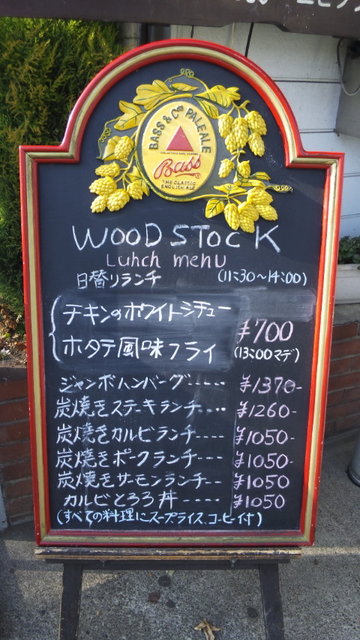 BASS & Co's PALE ALE
Bass
THE CLASSIC ENGLISH ALE
WOODSTOCK
Lunch menu
日替リランチ (11:30〜14:00)
チキンのホワイトシチュー
ホタテ風味フライ
¥700
(13:00マデ)
ジャンボハンバーグ----- ¥1370-
炭焼きステーキランチ---- ¥1260-
炭焼きカルビランチ---- ¥1050-
炭焼きポークランチ---- ¥1050-
炭焼きサーモンランチ-- ¥1050
カルビとろろ丼---- ¥1050
(すべての料理にスープライス、コーヒー付)